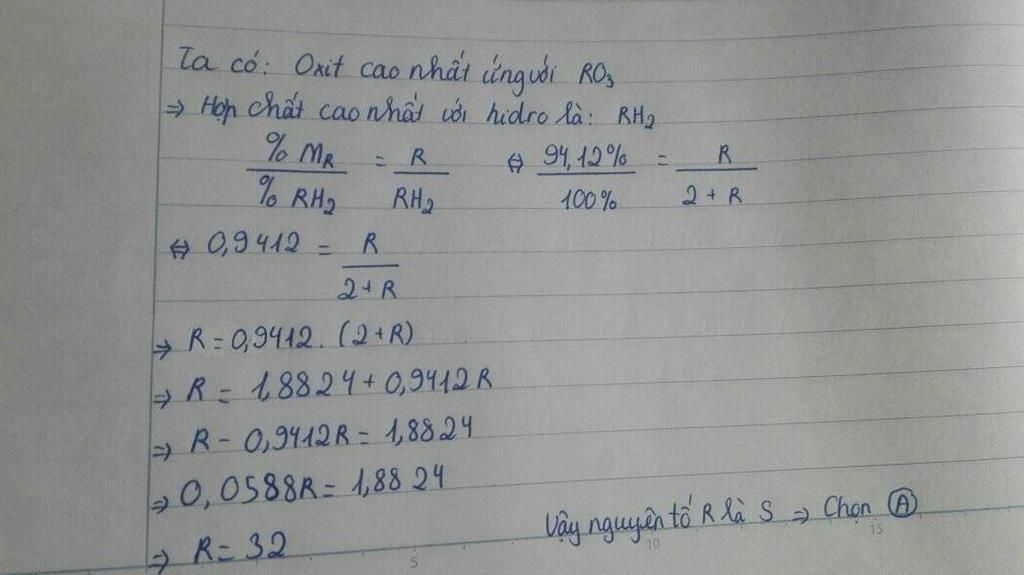 Ta có: Oxit cao nhất ứng với RO₃
⇒ Hợp chất cao nhất với hidro là: RH₂
% M_R / % RH₂ = R / RH₂ ⇔ 94,12% / 100% = R / 2 + R
⇔ 0,9412 = R / 2+R
⇒ R = 0,9412. (2+R)
⇒ R = 1,8824 + 0,9412R
⇒ R - 0,9412R = 1,8824
⇒ 0,0588R = 1,8824
⇒ R = 32
Vậy nguyên tố R là S ⇒ Chọn Ⓐ
5 10 15